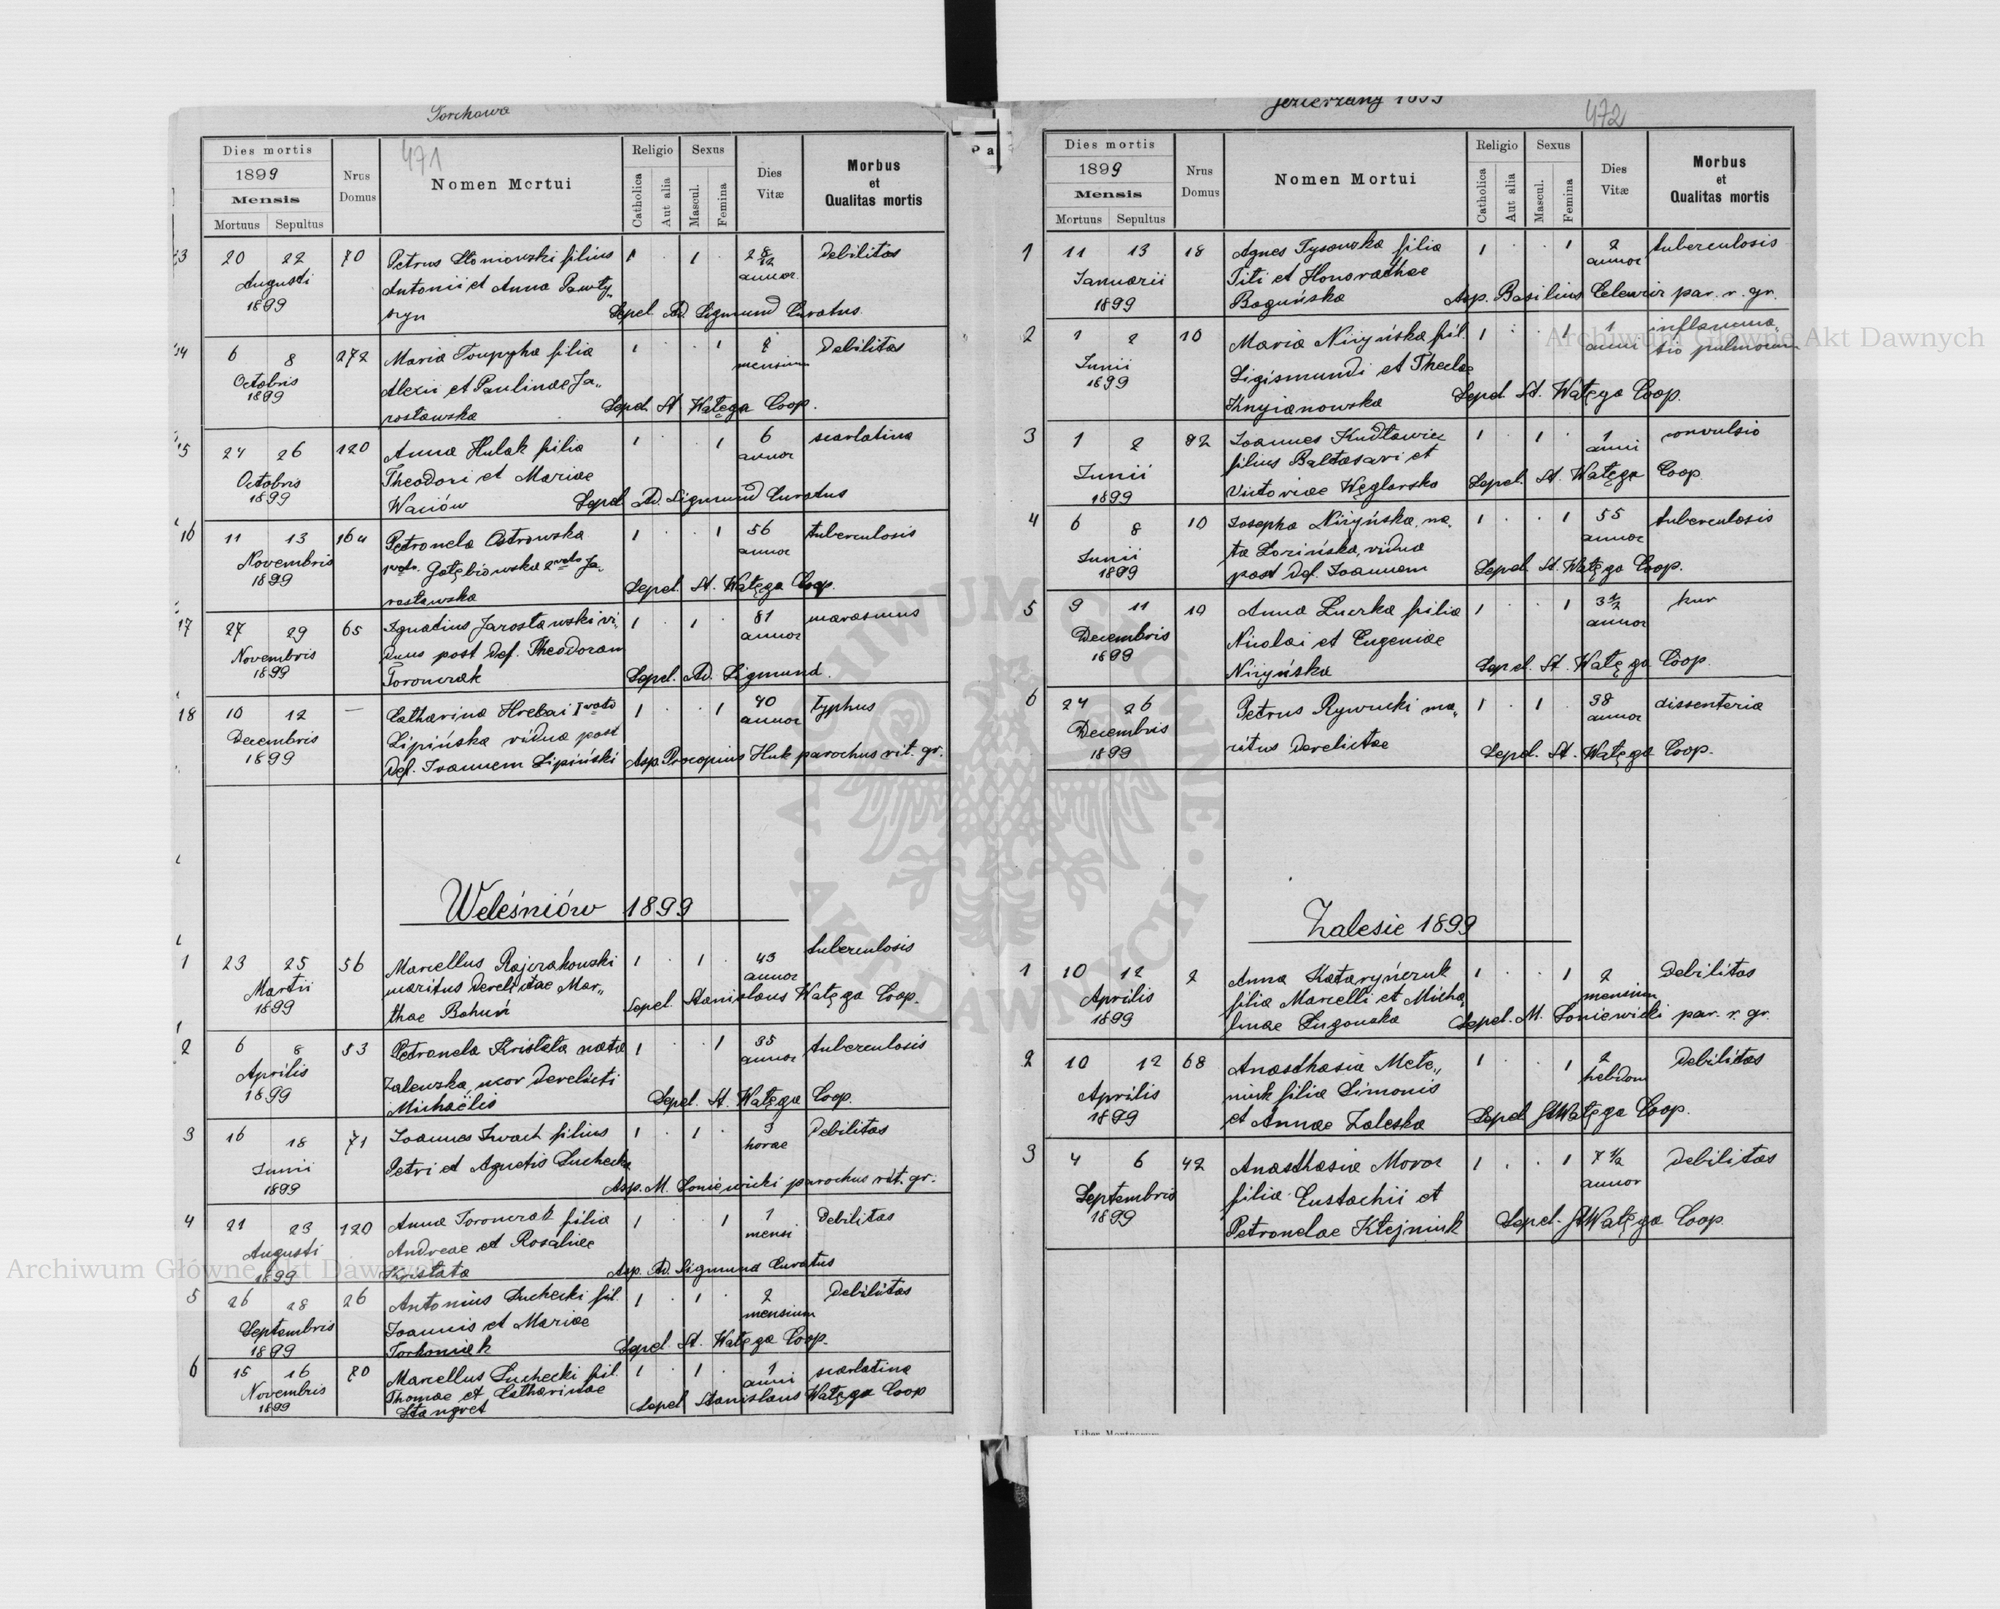 Torchawa
471
Dies mortis
1899
Mensis
Mortuus Sepultus
Nrus Domus
Nomen Mortui
Religio
Catholica
Aut alia
Sexus
Mascul.
Femina
Dies Vitæ
Morbus et Qualitas mortis
20 22 70 Petrus Stoniowski filius 1 . 1 . 2 8/12 Debilitas
Augusti Antonii et Anna annor.
1899 Sepel. Ad. Sigmund Curatus.
14 6 8 272 Maria filia 1 . . 1 2 Debilitas
Octobris Alexii et Paulinae Ja„ mensium
1899 rosławska Sepel. St. Wałęga Coop.
15 24 26 120 Anna Hulak filia 1 . . 1 6 scarlatina
Octobris Theodori et Mariae annor
1899 Waniów Sepel. Ad. Sigmund Curatus
16 11 13 164 Petronela Ostrowska 1 . . 1 56 tuberculosis
Novembris 1voto. Gołębiowska 2voto Ja„ annor
1899 rosławska Sepel. St. Wałęga Coop.
17 27 29 65 Ignatius Jarosławski vi„ 1 . 1 . 81 marasmus
Novembris duus post def. Theodoram annor
1899 Toronczak Sepel. Ad. Sigmund.
18 10 12 — Catharina Hrebai 1 voto 1 . . 1 40 typhus
Decembris Lipińska vidua post annor
1899 def. Ioannem Lipiński Asp. Procopius Huk parochus rit. gr.
Weleśniów 1899
1 23 25 56 Marcellus Rajczakowski 1 . 1 . 43 tuberculosis
Martii maritus derelictae Mar„ annor
1899 thae Bohuń Sepel. Stanislaus Wałęga Coop.
2 6 8 53 Petronela Kristata nata 1 . . 1 35 tuberculosis
Aprilis Zalewska uxor derelicti annor
1899 Michaëlis Sepel. St. Wałęga Coop.
3 16 18 71 Ioannes Iwach filius 1 . 1 . 3 Debilitas
Iunii Petri et Agnetis Suchecka horae
1899 Asp. M. Soniewicki parochus rit. gr.
4 21 23 120 Anna Toronczak filia 1 . . 1 1 Debilitas
Augusti Andreae et Rosaliae mensi
1899 Kristata Asp. Ad. Sigmund Curatus
5 26 28 26 Antonius Suchecki fil. 1 . 1 . 2 Debilitas
Septembris Ioannis et Mariae mensium
1899 Torkoniak Sepel. St. Wałęga Coop.
6 15 16 70 Marcellus Suchecki fil. 1 . 1 . 1 scarlatina
Novembris Thomae et Catharinae anni
1899 Stangret Sepel. Stanislaus Wałęga Coop
Jezierzany 1899
472
Pa
Dies mortis
1899
Mensis
Mortuus Sepultus
Nrus Domus
Nomen Mortui
Religio
Catholica
Aut alia
Sexus
Mascul.
Femina
Dies Vitæ
Morbus et Qualitas mortis
1 11 13 18 Agnes Tysowska filia 1 . . 1 2 tuberculosis
Ianuarii Titi et Honorathae annor
1899 Boguńska Asp. Basilius Celewicz par. r. gr.
2 1 2 10 Maria Niżyńska fil. 1 . . 1 1 inflamma„
Iunii Sigismundi et Theclae anni tio pulmonum
1899 Knyianowska Sepel. St. Wałęga Coop.
3 1 2 82 Ioannes Kudławiec 1 . 1 . 1 convulsio
Iunii filius Baltasari et anni
1899 Victoriae Węglarska Sepel. St. Wałęga Coop.
4 6 8 10 Iosepha Niżyńska, na„ 1 . . 1 55 tuberculosis
Iunii ta Lozińska, vidua annor
1899 post def. Ioannem Sepel. St. Wałęga Coop.
5 9 11 19 Anna Luczka filia 1 . . 1 3 1/2 kur
Decembris Nicolai et Eugeniae annor
1899 Niżyńska Sepel. St. Wałęga Coop.
6 24 26 Petrus Rywucki ma„ 1 . 1 . 38 dissenteria
Decembris ritus derelictae annor
1899 Sepel. St. Wałęga Coop.
Zalesie 1899
1 10 12 2 Anna Kataryńczuk 1 . . 1 2 Debilitas
Aprilis filia Marcelli et Micha„ mensium
1899 linae Sugowska Sepel. M. Soniewicki par. r. gr.
2 10 12 68 Anasthasia Mete„ 1 . . 1 2 Debilitas
Aprilis niuk filia Simonis hebdom
1899 et Annae Zaleska Sepel. St Wałęga Coop.
3 4 6 42 Anasthasia Moroz 1 . . 1 7 1/2 Debilitas
Septembris filia Eustachii et annor
1899 Petronelae Klejniuk Sepel. St Wałęga Coop.
Liber Mortuorum
Archiwum Główne Akt Dawnych
Archiwum Główne Akt Dawnych
ARCHIWUM GŁÓWNE AKT DAWNYCH